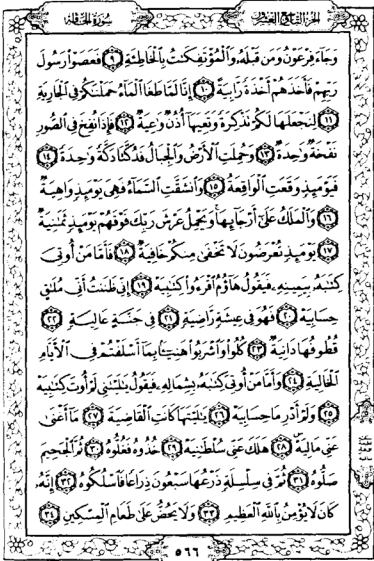 سورة الحاقة
الجزء التاسع والعشرون
وَجَاءَ فِرْعَوْنُ وَمَن قَبْلَهُ وَالْمُؤْتَفِكَتُ بِالْخَاطِئَةِ ٩ فَعَصَوْا رَسُولَ
رَبِّهِمْ فَأَخَذَهُمْ أَخْذَةً رَّابِيَةً ١٠ إِنَّا لَمَّا طَغَا الْمَاءُ حَمَلْنَكُمْ فِي الْجَارِيَةِ
١١ لِنَجْعَلَهَا لَكُمْ تَذْكِرَةً وَتَعِيَهَا أُذُنٌ وَعِيَةٌ ١٢ فَإِذَا نُفِخَ فِي الصُّورِ
نَفْخَةٌ وَحِدَةٌ ١٣ وَحُمِلَتِ الْأَرْضُ وَالْجِبَالُ فَدُكَّتَا دَكَّةً وَحِدَةً ١٤
فَيَوْمَئِذٍ وَقَعَتِ الْوَاقِعَةُ ١٥ وَانشَقَّتِ السَّمَاءُ فَهِيَ يَوْمَئِذٍ وَاهِيَةٌ
١٦ وَالْمَلَكُ عَلَى أَرْجَائِهَا وَيَحْمِلُ عَرْشَ رَبِّكَ فَوْقَهُمْ يَوْمَئِذٍ ثَمَنِيَةٌ
١٧ يَوْمَئِذٍ تُعْرَضُونَ لَا تَخْفَى مِنكُمْ خَافِيَةٌ ١٨ فَأَمَّا مَنْ أُوتِيَ
كِتَبَهُ بِيَمِينِهِ فَيَقُولُ هَاؤُمُ اقْرَءُوا كِتَبِيَهْ ١٩ إِنِّي ظَنَنتُ أَنِّي مُلَقٍ
حِسَابِيَهْ ٢٠ فَهُوَ فِي عِيشَةٍ رَّاضِيَةٍ ٢١ فِي جَنَّةٍ عَالِيَةٍ ٢٢
قُطُوفُهَا دَانِيَةٌ ٢٣ كُلُوا وَاشْرَبُوا هَنِيئًا بِمَا أَسْلَفْتُمْ فِي الْأَيَّامِ
الْخَالِيَةِ ٢٤ وَأَمَّا مَنْ أُوتِيَ كِتَبَهُ بِشِمَالِهِ فَيَقُولُ يَلَيْتَنِي لَمْ أُوتَ كِتَبِيَهْ
٢٥ وَلَمْ أَدْرِ مَا حِسَابِيَهْ ٢٦ يَلَيْتَهَا كَانَتِ الْقَاضِيَةَ ٢٧ مَا أَغْنَى
عَنِّي مَالِيَهْ ٢٨ هَلَكَ عَنِّي سُلْطَنِيَهْ ٢٩ خُذُوهُ فَغُلُّوهُ ٣٠ ثُمَّ الْجَحِيمَ
صَلُّوهُ ٣١ ثُمَّ فِي سِلْسِلَةٍ ذَرْعُهَا سَبْعُونَ ذِرَاعًا فَاسْلُكُوهُ ٣٢ إِنَّهُ
كَانَ لَا يُؤْمِنُ بِاللَّهِ الْعَظِيمِ ٣٣ وَلَا يَحُضُّ عَلَى طَعَامِ الْمِسْكِينِ ٣٤
٥٦٦